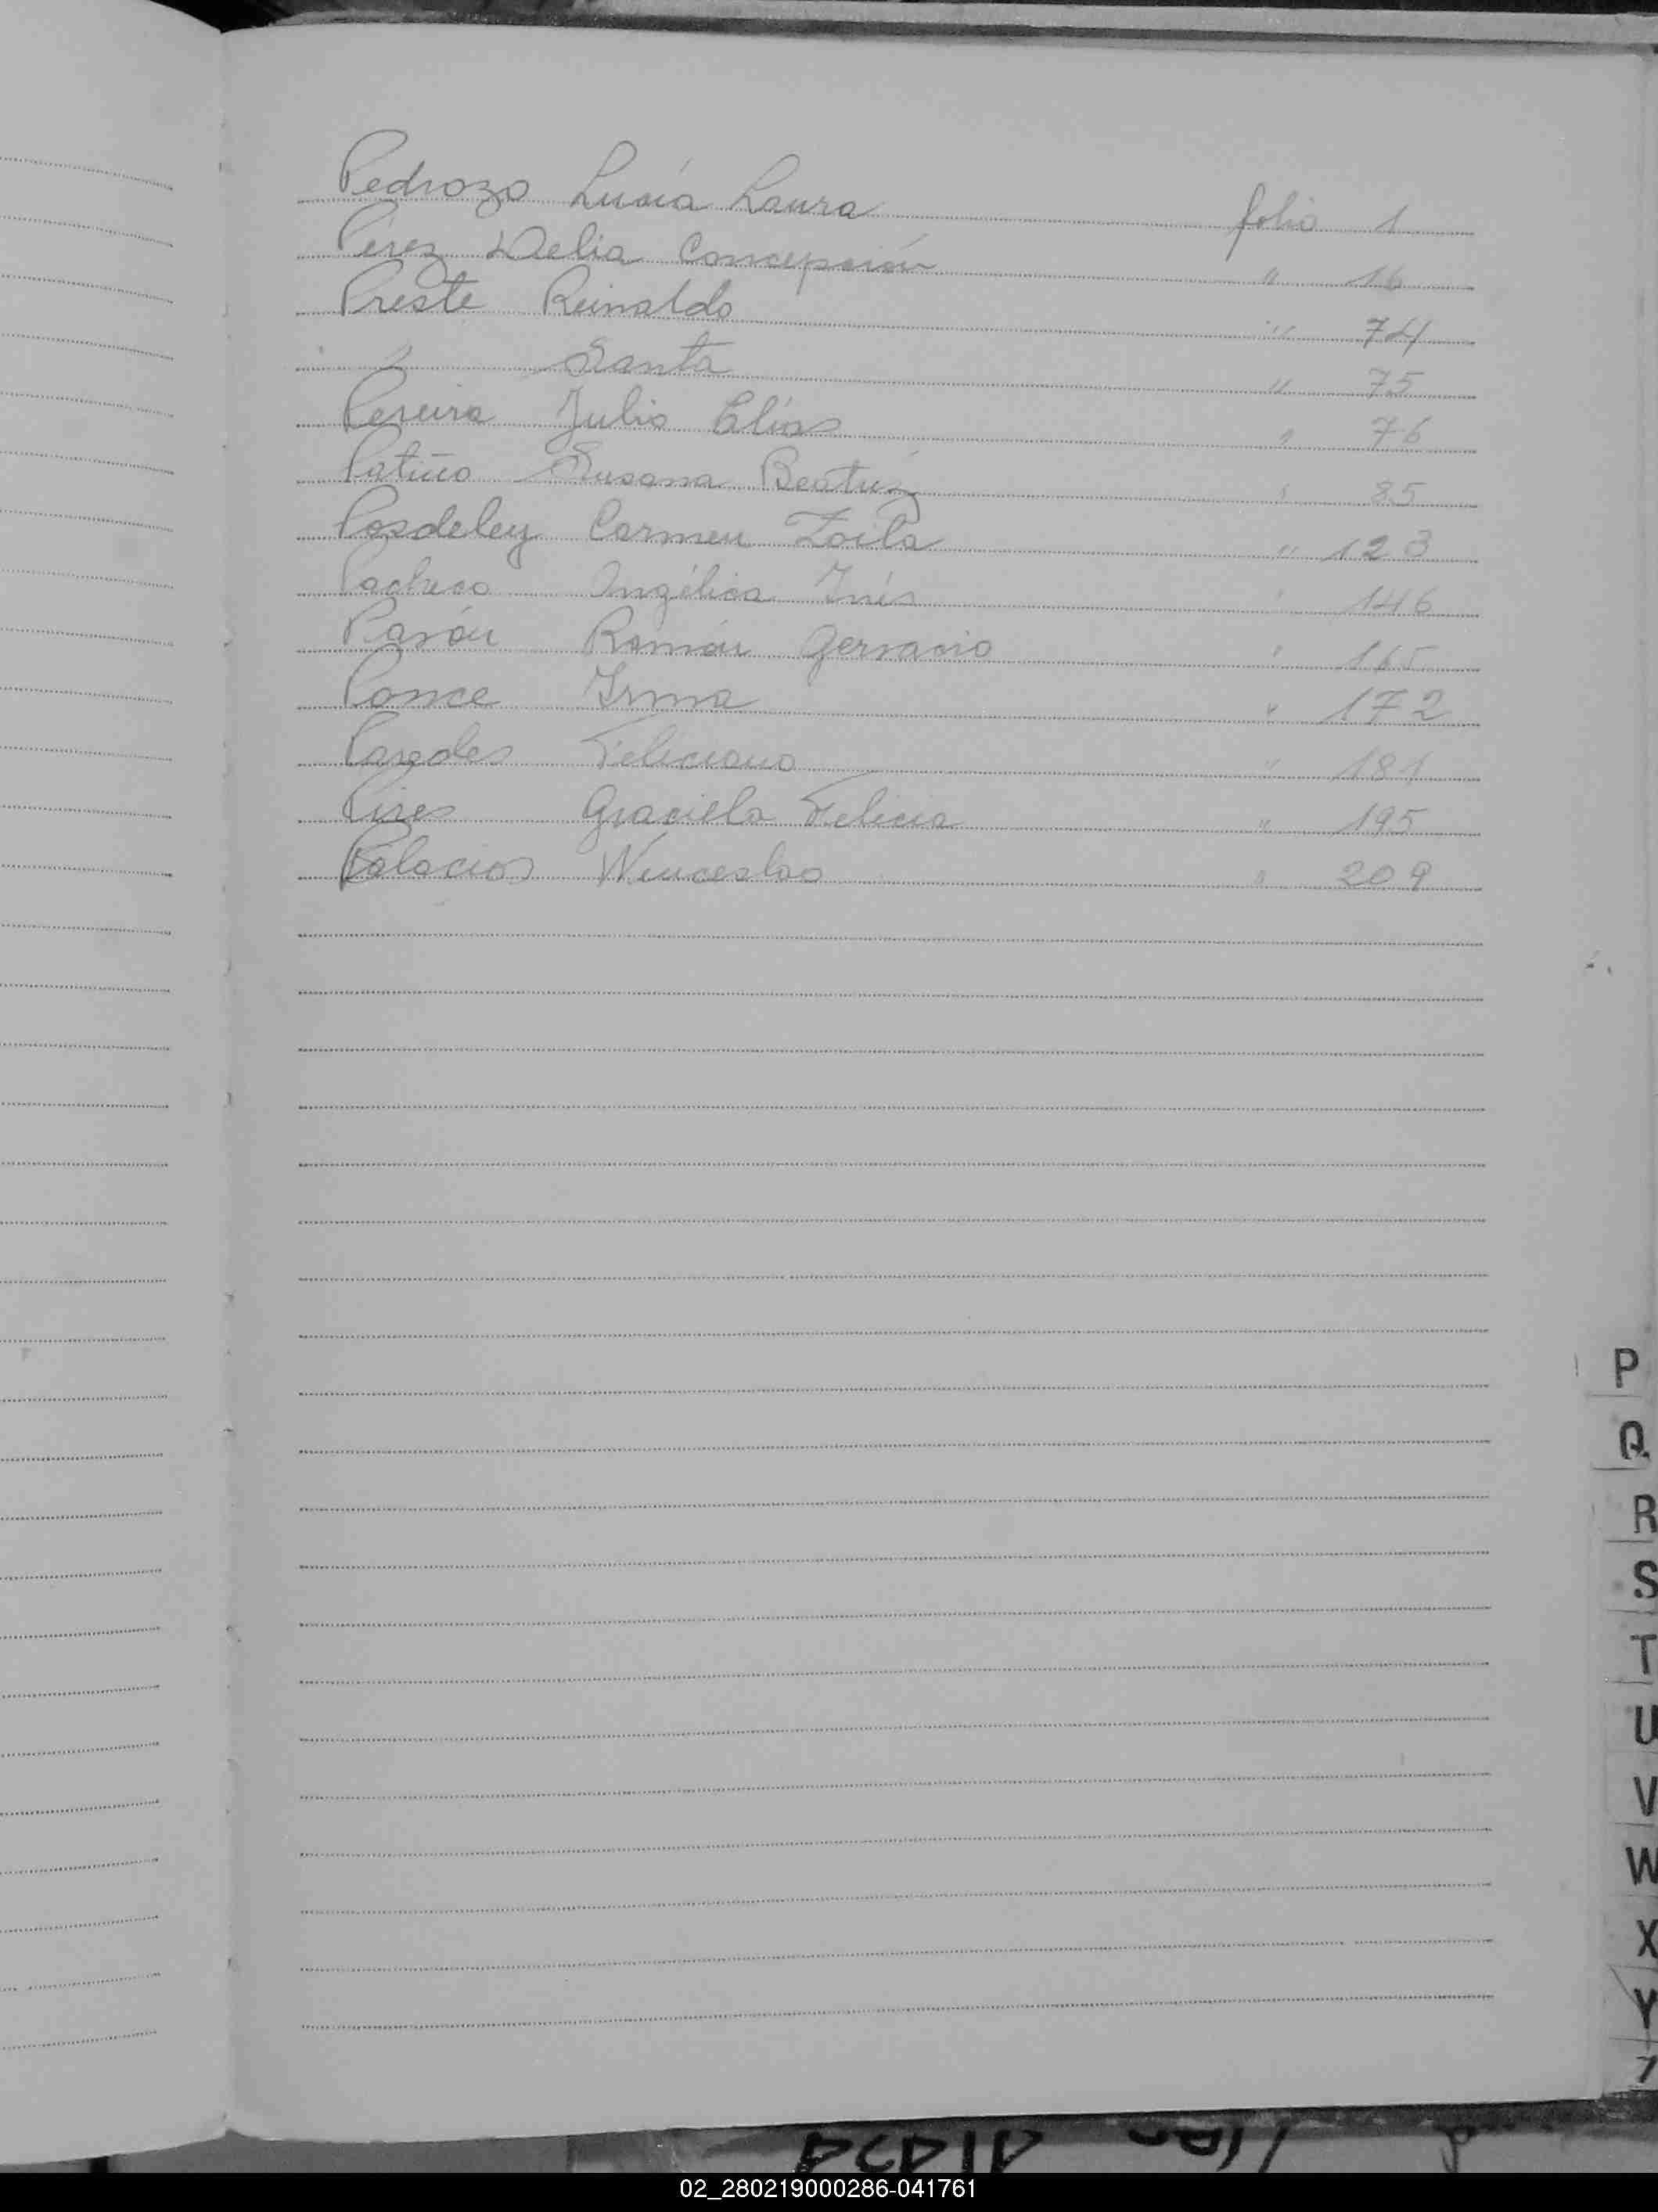 Pedrozo Lucía Laura folio 1
Pérez Delia Concepción " 16
Preste Reinaldo " 74
" Santa " 75
Pereira Julio Elías " 76
Patiño Susana Beatriz " 85
Posdeley Carmen Zoila " 123
Pacheco Angélica Inés " 146
Pavón Román Gervacio " 165
Ponce Irma " 172
Paredes Feliciano " 181
Pires Graciela Felicia " 195
Palacios Wenceslao " 209
P
Q
R
S
T
U
V
W
X
Y
Z
02_280219000286-041761